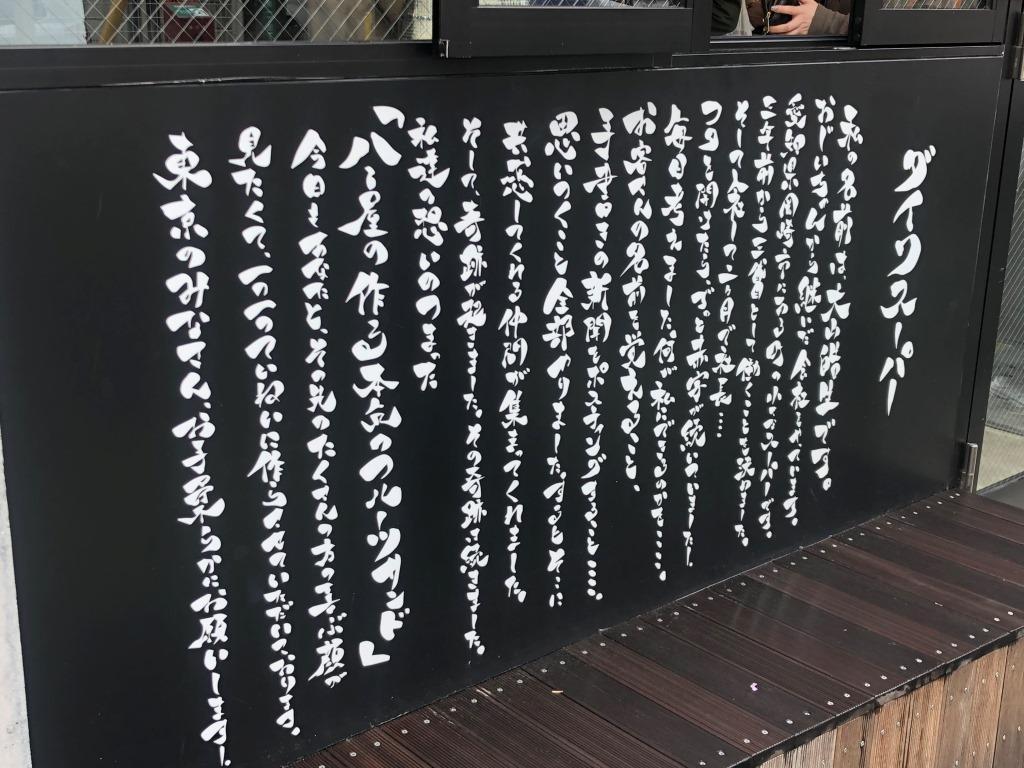 ダイワスーパー
私の名前は大山陽生です。
おじいちゃんから継いだ会社をやっています。
愛知県岡崎市にあるの小さなスーパーです。
三年前から二代目として働くことを決めました。
そして入社して一ヶ月で社長…
つつを開けたらずっと赤字が続いていました！
毎日考えました何が私にできるのかな…。
お客さんの名前を覚えること、
子育てのきの新聞をポスティングすること…
思いつくこと全部やりましたするとそこに
共感してくれる仲間が集まってくれました。
そして、奇跡が起きました。その奇跡は続きました。
私達の想いのつまった
「八百屋の作る本気のフルーツサンド」
今日も又なだと、その先のたくさんの方の喜ぶ顔が
見たくて、一つ一つていねいに作らせていただいております。
東京のみなさんお手柔らかにお願いします！